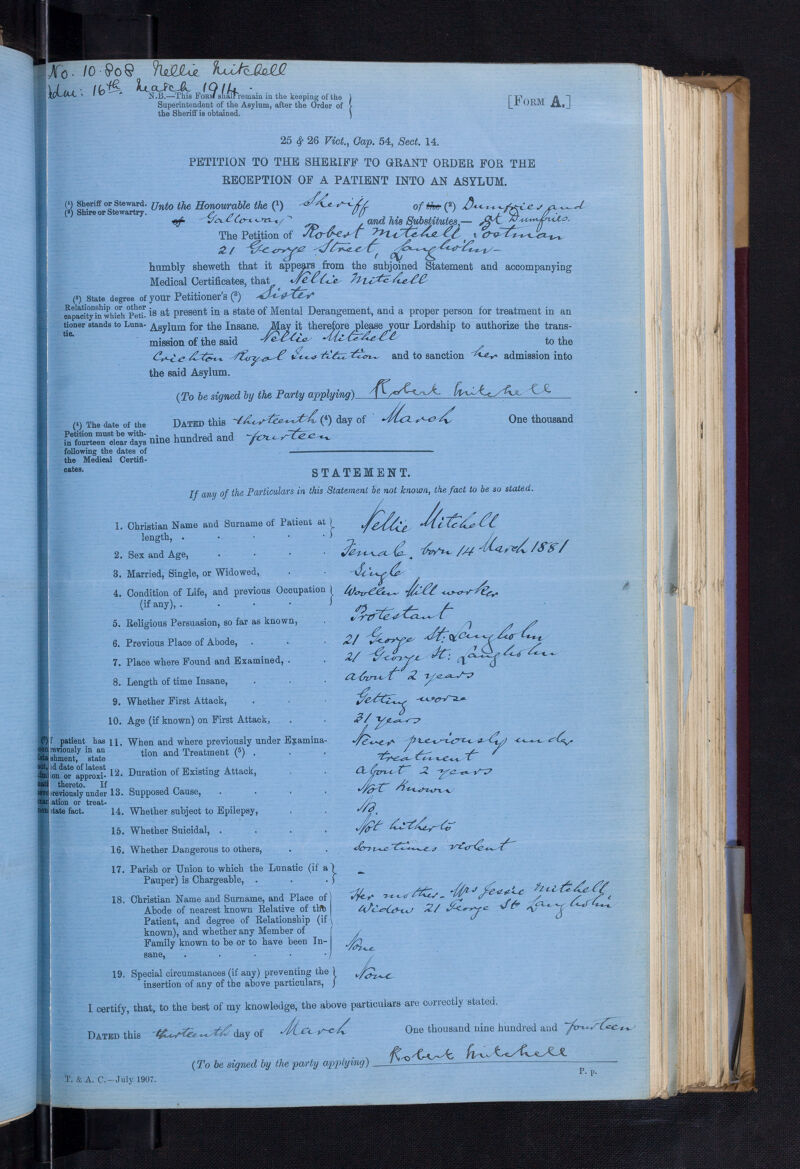 No. 10.808 Nellie Mitchell
Adm: 16th March 1914.
N.B.—This Form shall remain in the keeping of the
Superintendent of the Asylum, after the Order of
the Sheriff is obtained.
[FORM A.]
25 & 26 Vict., Cap. 54, Sect. 14.
PETITION TO THE SHERIFF TO GRANT ORDER FOR THE
RECEPTION OF A PATIENT INTO AN ASYLUM.
(1) Sheriff or Steward.
(2) Shire or Stewartry.
Unto the Honourable the (1) Sheriff of the (2) Dumfries and
of Galloway and his Substitutes,— At Dumfries.
The Petition of Robert Mitchell Postman
21 George Street, Langholm—
humbly sheweth that it appears from the subjoined Statement and accompanying
Medical Certificates, that Nellie Mitchell
(3) State degree of
Relationship or other
capacity in which Peti-
tioner stands to Luna-
tic.
your Petitioner's (3) Sister
is at present in a state of Mental Derangement, and a proper person for treatment in an
Asylum for the Insane. May it therefore please your Lordship to authorize the trans-
mission of the said Nellie Mitchell to the
Crichton Royal Institution and to sanction her admission into
the said Asylum.
(To be signed by the Party applying) Robert Mitchell
(4) The date of the
Petition must be with-
in fourteen clear days
following the dates of
the Medical Certifi-
cates.
DATED this thirteenth (4) day of March One thousand
nine hundred and fourteen
STATEMENT.
If any of the Particulars in this Statement be not known, the fact to be so stated.
1. Christian Name and Surname of Patient at
length, . Nellie Mitchell
2. Sex and Age, Female, born 14 March 1881
3. Married, Single, or Widowed, Single
4. Condition of Life, and previous Occupation
(if any), . Woollen Mill worker
5. Religious Persuasion, so far as known, Protestant
6. Previous Place of Abode, . 21 George St: Langholm
7. Place where Found and Examined, . 21 George St: Langholm
8. Length of time Insane, about 2 years
9. Whether First Attack, Getting worse
10. Age (if known) on First Attack, 31 years
f patient has
reviously in an
shment, state
d date of latest
on or approxi-
thereto. If
reviously under
ation or treat-
state fact.
11. When and where previously under Examina-
tion and Treatment (5) . Never previously under
treatment
12. Duration of Existing Attack, about 2 years
13. Supposed Cause, Not Known
14. Whether subject to Epilepsy, No
15. Whether Suicidal, . Not hitherto
16. Whether Dangerous to others, sometimes violent
17. Parish or Union to which the Lunatic (if a
Pauper) is Chargeable, . -
18. Christian Name and Surname, and Place of
Abode of nearest known Relative of the
Patient, and degree of Relationship (if
known), and whether any Member of
Family known to be or to have been In-
sane, .
Her mother - Mrs Jessie Mitchell,
Widow 21 George St Langholm
None
19. Special circumstances (if any) preventing the
insertion of any of the above particulars, None
I certify, that, to the best of my knowledge, the above particulars are correctly stated.
DATED this thirteenth day of March One thousand nine hundred and fourteen
(To be signed by the party applying) Robert Mitchell
T. & A. C.—July 1907.
P. p.